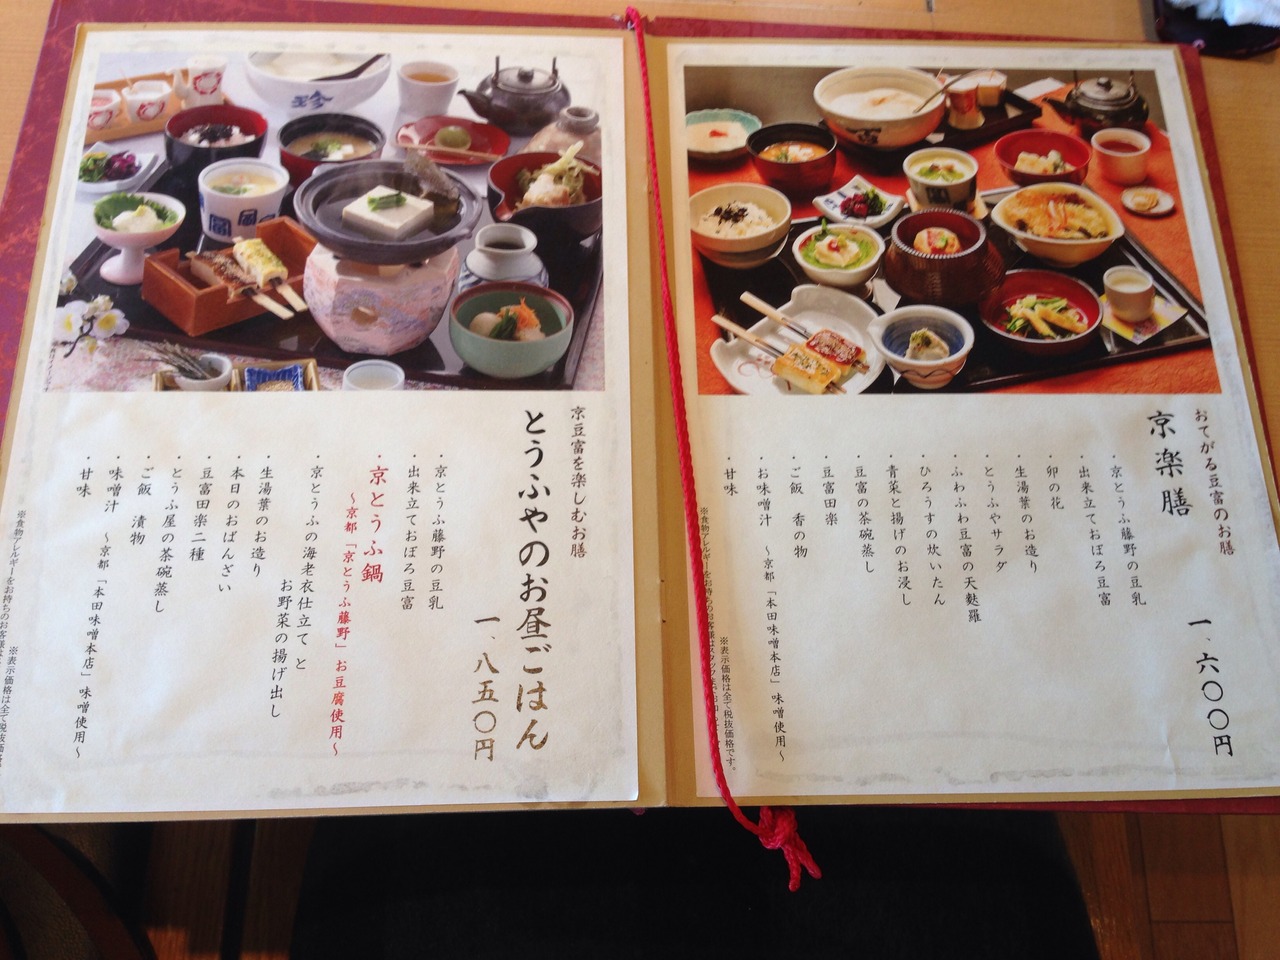 おてがる豆富のお膳
京楽膳
一、六〇〇円
・京とうふ藤野の豆乳
・出来立ておぼろ豆富
・卯の花
・生湯葉のお造り
・とうふやサラダ
・ふわふわ豆富の天麩羅
・ひろうすの炊いたん
・青菜と揚げのお浸し
・豆富の茶碗蒸し
・豆富田楽
・ご飯 香の物
・お味噌汁 〜京都「本田味噌本店」味噌使用〜
・甘味
※表示価格は全て税抜価格です。
※食物アレルギーをお持ちのお客様は
京豆富を楽しむお膳
とうふやのお昼ごはん
一、八五〇円
・京とうふ藤野の豆乳
・出来立ておぼろ豆富
・京とうふ鍋
〜京都「京とうふ藤野」お豆腐使用〜
・京とうふの海老衣仕立てと
お野菜の揚げ出し
・生湯葉のお造り
・本日のおばんざい
・豆富田楽二種
・とうふ屋の茶碗蒸し
・ご飯 漬物
・味噌汁 〜京都「本田味噌本店」味噌使用〜
・甘味
※表示価格は全て税抜価格
※食物アレルギーをお持ちのお客様は
珍